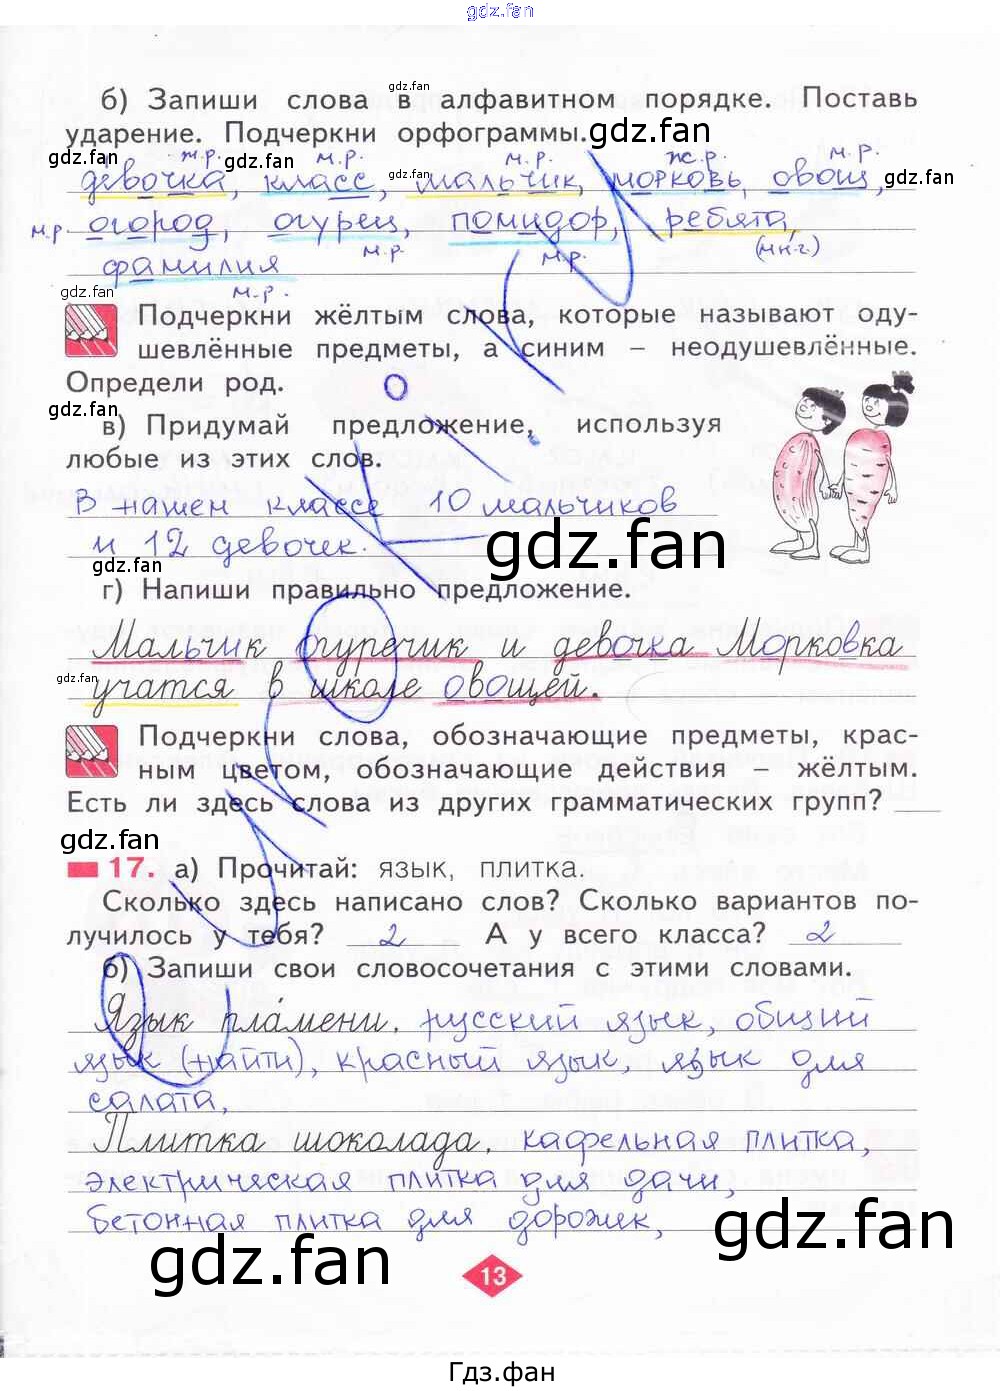 gdz.fan
gdz.fan
б) Запиши слова в алфавитном порядке. Поставь
ударение. Подчеркни орфограммы.
gdz.fan
gdz.fan
gdz.fan
ж.р. м.р. м.р. ж.р. м.р.
gdz.fan
gdz.fan
девочка, класс, мальчик, морковь, овощ,
м.р. огород, огурец, помидор, ребята,
м.р. м.р. (мн.ч.)
фамилия
gdz.fan
м.р.
Подчеркни жёлтым слова, которые называют оду-
шевлённые предметы, а синим – неодушевлённые.
Определи род.
gdz.fan
в) Придумай предложение, используя
любые из этих слов.
В нашем классе 10 мальчиков
и 12 девочек.
gdz.fan
gdz.fan
г) Напиши правильно предложение.
Мальчик огуречик и девочка Морковка
gdz.fan
учатся в школе овощей.
Подчеркни слова, обозначающие предметы, крас-
ным цветом, обозначающие действия – жёлтым.
Есть ли здесь слова из других грамматических групп?
gdz.fan
17. а) Прочитай: язык, плитка.
Сколько здесь написано слов? Сколько вариантов по-
лучилось у тебя? 2 А у всего класса? 2
б) Запиши свои словосочетания с этими словами.
Язык пла́мени, русский язык, общий
язык (найти), красный язык, язык для
салата,
Плитка шоколада, кафельная плитка,
электрическая плитка для дачи,
бетонная плитка для дорожек,
gdz.fan
gdz.fan
13
Гдз.фан